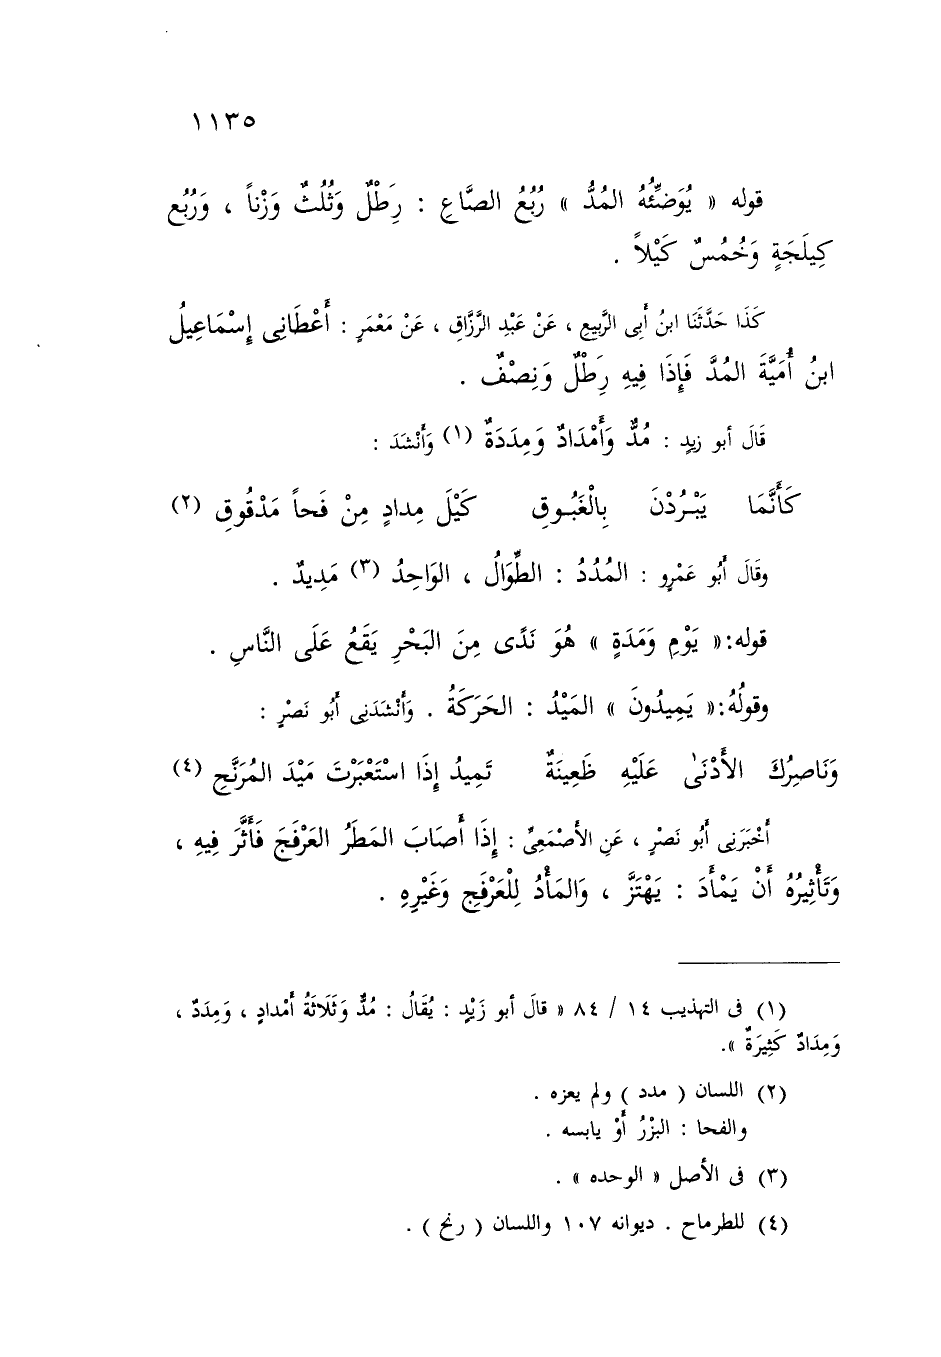 ١١٣٥
قوله « يُوَضِّئُهُ المُدُّ » رُبُعُ الصَّاعِ : رَِطْلٌ وَثُلُثٌ وَزْناً ، وَرُبُع
كِيلَجَةٍ وَخُمُسٌ كَيْلاً .
كَذَا حَدَّثَنَا ابنُ أَبِى الرَّبِيعِ ، عَنْ عَبْدِ الرَّزَّاقِ ، عَنْ مَعْمَرٍ : أَعْطَانِى إِسْمَاعِيلُ
ابنُ أُمَيَّةَ المُدَّ فَإِذَا فِيهِ رَِطْلٌ وَنِصْفٌ .
قَالَ أبو زيدٍ : مُدٌّ وَأَمْدَادٌ وَمِدَدَةٌ (١) وَأَنْشَدَ :
كَأَنَّمَا يَبْرُدْنَ بِالْغَبُوقِ كَيْلَ مِدادٍ مِنْ فَحاً مَدْقُوقِ (٢)
وقَالَ أَبُو عَمْرٍو : المُدُدُ : الطِّوَالُ ، الوَاحِدُ (٣) مَدِيدٌ .
قوله:« يَوْمِ وَمَدَةٍ » هُوَ نَدًى مِنَ البَحْرِ يَقَعُ عَلَى النَّاسِ .
وقولُهُ:« يَمِيدُونَ » المَيْدُ : الحَرَكَةُ . وَأَنْشَدَنِى أَبُو نَصْرٍ :
وَنَاصِرُكَ الأَدْنَىٰ عَلَيْهِ ظَعِينَةٌ تَمِيدُ إِذَا اسْتَعْبَرْتَ مَيْدَ المُرَنَّحِ (٤)
أَخْبَرَنِى أَبُو نَصْرٍ ، عَنِ الأَصْمَعِىِّ : إِذَا أَصَابَ المَطَرُ العَرْفَجَ فَأَثَّرَ فِيهِ ،
وَتَأْثِيرُهُ أَنْ يَمْأَدَ : يَهْتَزَّ ، وَالمَأْدُ لِلْعَرْفَجِ وَغَيْرِهِ .
(١) فى التهذيب ١٤ / ٨٤ « قالَ أبو زَيْدٍ : يُقَالُ : مُدٌّ وَثَلَاثَةُ أَمْدادٍ ، وَمِدَدٌ ،
وَمِدَادٌ كَثِيرَةٌ ».
(٢) اللسان ( مدد ) ولم يعزه .
والفحا : البزْرُ أَوْ يابسه .
(٣) فى الأصل « الوحده » .
(٤) للطرماح . ديوانه ١٠٧ واللسان ( رنح ) .